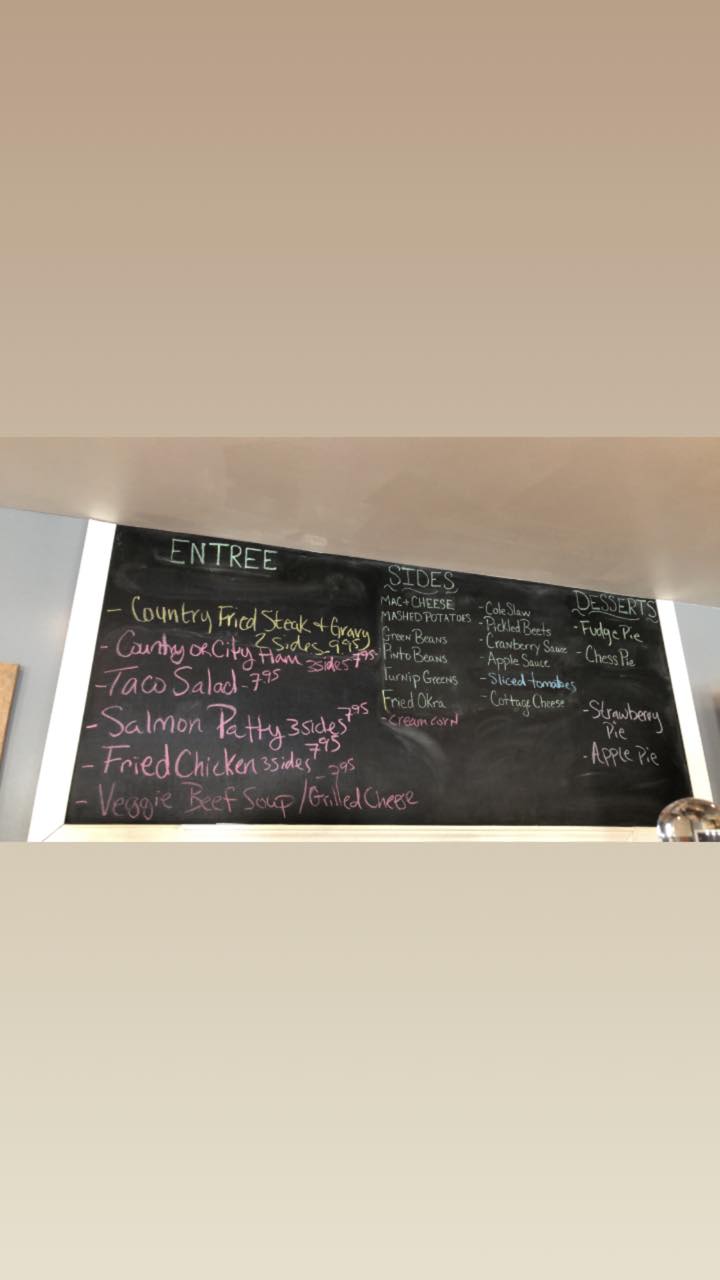 ENTREE
- Country Fried Steak + Gravy
2 Sides 9.95
- Country or City Ham 3sides 7.95
- Taco Salad - 7.95
- Salmon Patty 3 sides 7.95
- Fried Chicken 3 sides 7.95
- 7.95
- Veggie Beef Soup / Grilled Cheese
SIDES
MAC + CHEESE
MASHED POTATOES
Green Beans
Pinto Beans
Turnip Greens
Fried Okra
- cream corn
- Cole Slaw
- Pickled Beets
- Cranberry Sauce
- Apple Sauce
- Sliced tomatoes
- Cottage Cheese
DESSERTS
- Fudge Pie
- Chess Pie
- Strawberry
Pie
- Apple Pie